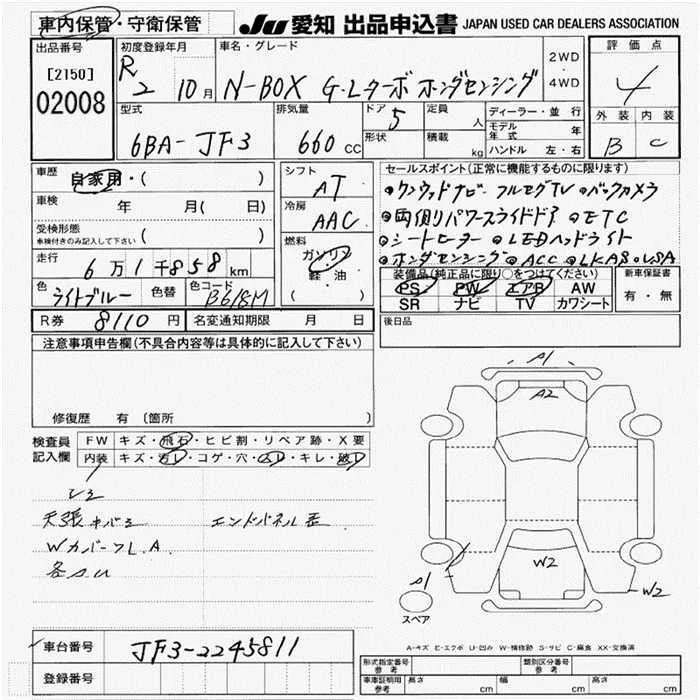 車内保管・守衛保管 JU 愛知 出品申込書 JAPAN USED CAR DEALERS ASSOCIATION
出品番号 初度登録年月 車名・グレード 2WD・4WD 評価点
[2150] R2 10月 N-BOX G・Lターボ ホンダセンシング 4
02008 型式 排気量 ドア 定員 ディーラー・並行 外装 内装
6BA-JF3 660 CC 5 人 モデル年式 年 B C
形状 積載 kg ハンドル 左・右
車歴 自家用・( ) シフト AT セールスポイント(正常に機能するものに限ります)
車検 年 月( 日) 冷房 AAC ・ケンウッドナビ フルセグTV ・バックカメラ
受検形態 ・両側パワースライドドア ・ETC
車検付きのみ記入して下さい ( ) 燃料 ガソリン ・シートヒーター ・LEDヘッドライト
走行 6万1千858km 軽・油 ・ホンダセンシング ・ACC ・LKAS ・VSA
色 ライトブルー 色替 色コード B618M ( ) 装備品(純正品に限り○をつけてください) 新車保証書
PS PW エアB AW 有・無
SR ナビ TV カワシート
R券 8110円 名変通知期限 月 日 後日品
注意事項申告欄(不具合内容等は具体的に記入して下さい)
修復歴 有(箇所 )
検査員記入欄 FW キズ・飛石・ヒビ割・リペア跡・X要
内装 キズ・汚レ・コゲ・穴・スレ・キレ・破レ
シミ
天張キバミ エンドパネル歪
WカバーフL.A.
各スレ
A1
A2
W2
A1
W2
スペア
A-キズ E-エクボ U-凹み W-補修跡 S-サビ C-腐食 XX-交換済
車台番号 JF3-2245811
登録番号
形式指定番号 参考 類別区分番号 参考
車庫証明用 参考 長さ cm 幅 cm 高さ cm